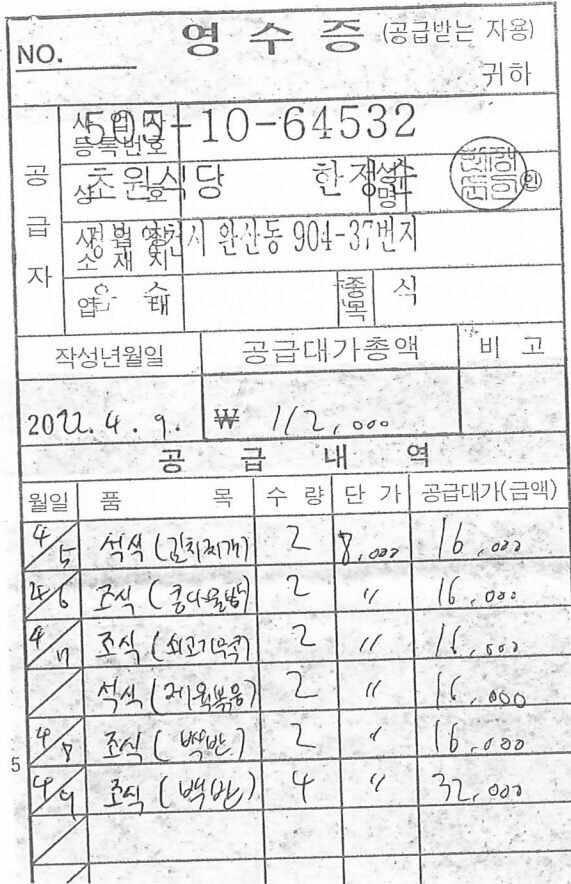 영 수 증 (공급받는 자용)
NO.
귀하
공급자
사업자등록번호 505-10-64532
상호 초원식당 성명 한정순 인
사업장소재지 시 완산동 904-37번지
업태 음 종목 식
작성년월일 공급대가총액 비 고
2022. 4. 9. ₩ 112,000
공 급 내 역
월일 품 목 수 량 단 가 공급대가(금액)
4/5 석식 (김치찌개) 2 8,000 16,000
4/6 조식 (콩나물밥) 2 〃 16,000
4/7 조식 (쇠고기무국) 2 〃 16,000
석식 (제육볶음) 2 〃 16,000
4/8 조식 (백반) 2 〃 16,000
5
4/9 조식 (백반) 4 〃 32,000